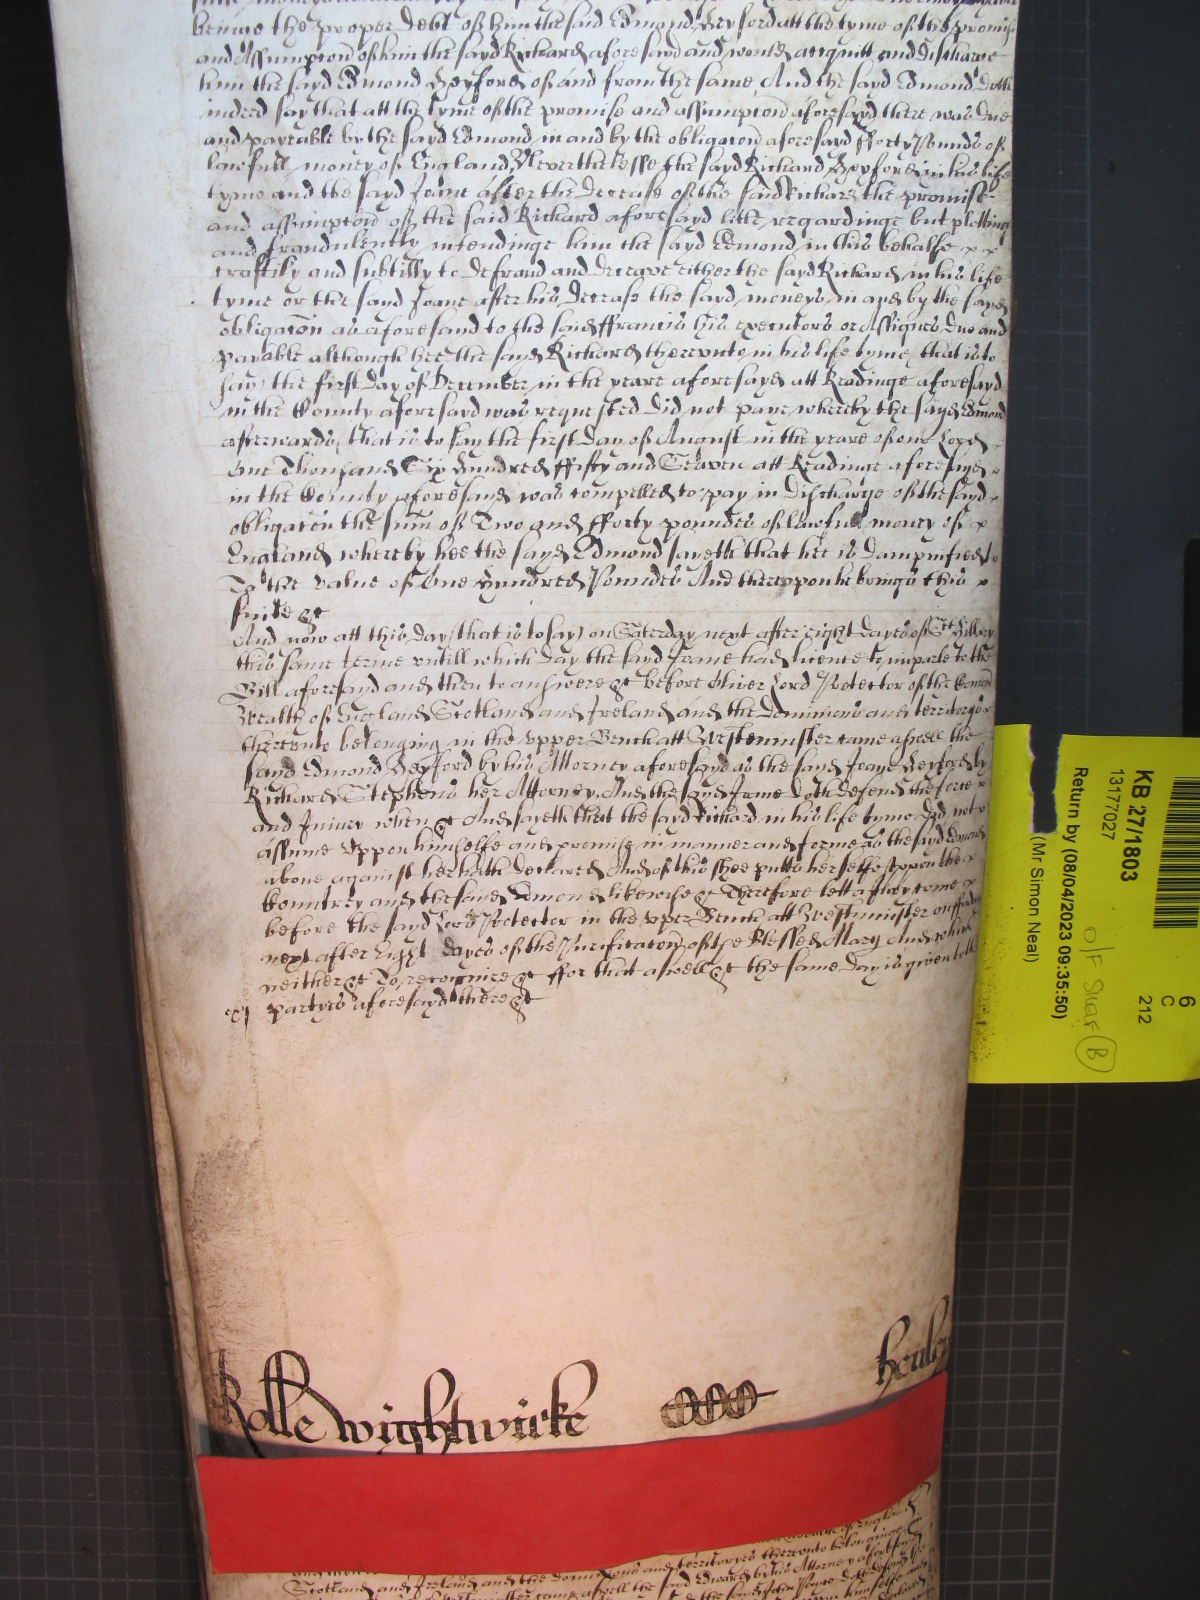 beinge the proper debt of him the said Edmond Heyford att the tyme of the promise
and Assumpcion of him the sayd Richard aforesayd and would acquitt and discharge
him the sayd Edmond Heyford of and from the same And the sayd Edmond doth
indeed say that att the tyme of the promise and assumpcion aforesayd there was due
and payeable by the sayd Edmond in and by the obligacon aforesayd fforty Pounds of
lawfull money of England Neverthelesse the sayd Richard Heyford in his life
tyme and the sayd Joane after the decease of the said Richard the promise
and assumpcion of the said Richard aforesayd litle regardinge but plotting
and fraudulently intendinge him the sayd Edmond in this behalfe
craftily and subtilly to defraud and deceave either the sayd Richard in his life
tyme or the sayd Joane after his decease the sayd moneys in and by the sayd
obligacon as aforesayd to the said ffrancis his executors or Assignes due and
payable although hee the sayd Richard therevnto in his life tyme that is to
say the first day of December in the yeare aforesayd att Readinge aforesayd
in the County aforesayd was requested did not pay whereby the sayd Edmond
afterwards that is to say the first day of August in the yeare of our Lord
one Thousand Six Hundred ffifty and Seaven att Readinge aforesayd
in the County aforesayd was compelled to pay in discharge of the sayd
obligacon the sum of Two and fforty poundes of lawfull money of
England whereby hee the sayd Edmond sayeth that hee is dampnified
To the value of One Hundred Poundes And therevppon he brings this
suite &c
And now att this day (that is to say) on Saterday next after eight dayes of St Hillary
this same terme vntill which day the sayd Joane had licence to imparle to the
Bill aforesayd and then to answere &c before Oliver Lord Protector of the Comon
Wealth of England Scotland and Ireland and the Dominions and territoryes
therevnto belonging in the vpper Bench att Westminster came aswell the
sayd Edmond Heyford by his Attorney aforesayd as the sayd Joane Heyford by
Richard Stephens her Attorney And the sayd Joane doth defend the force
and Iniury when &c And sayeth that the sayd Richard in his life tyme did not
assume vppon himselfe and promise in manner and forme as the sayd Edmond
above against her hath declared And of this shee putts her selfe vppon the
Countrey and the said Edmond likewise &c Therefore lett a Iury come
before the sayd Lord Protector in the vpper Bench att Westminster on
next after Eight dayes of the Purificacon of the Blessed Mary And which
neither &c To recognize &c ffor that aswell &c the same day is given to the
partyes aforesayd there &c
Rolle Wightwicke
Scotland and Ireland and the dominions and territoryes therevnto belonginge
KB 27/1803
13177027
Return by (08/04/2023 09:35:50)
(Mr Simon Neal)
6
C
212
O/F Shaf B